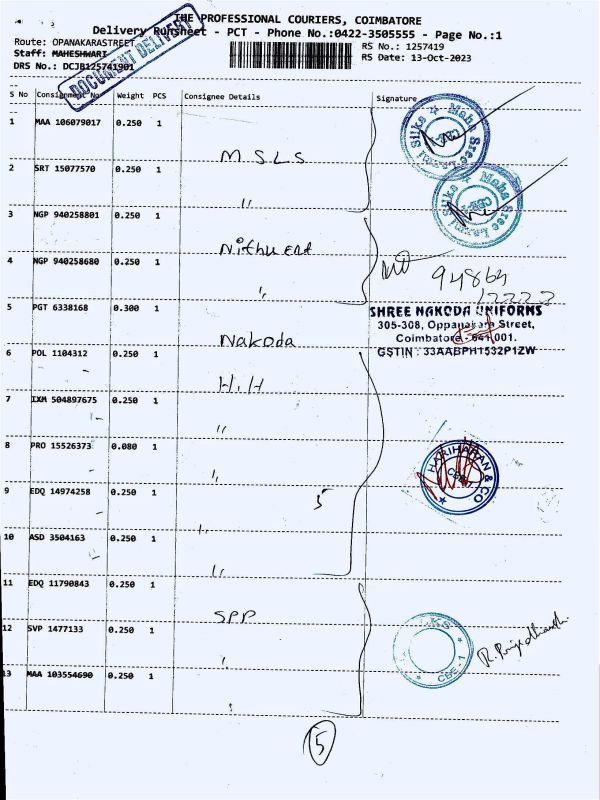 THE PROFESSIONAL COURIERS, COIMBATORE
Delivery Runsheet - PCT - Phone No.:0422-3505555 - Page No.:1
Route: OPANAKARASTREET
RS No.: 1257419
Staff: MAHESHWARI
RS Date: 13-Oct-2023
DRS No.: DCJB125741901
DOCUMENT DELIVERY
S No Consignment No Weight PCS Consignee Details Signature
1 MAA 106079017 0.250 1 M.S.L.S
2 SRT 15077570 0.250 1 "
Maha Sree Laxmi Silks CBE-1
Maha Sree Laxmi Silks CBE-1
3 NGP 940258801 0.250 1
4 NGP 940258680 0.250 1 "
5 PGT 6338168 0.300 1 Nakoda
SHREE NAKODA UNIFORMS
305-308, Oppanakara Street,
Coimbatore - 641 001.
GSTIN : 33AABPH1532P1ZW
6 POL 1104312 0.250 1 H.H
7 IXM 504897675 0.250 1 "
8 PRO 15526373 0.080 1 "
HARIHARAN & CO
9 EDQ 14974258 0.250 1 "
5
10 ASD 3504163 0.250 1 "
11 EDQ 11790843 0.250 1 SPP
12 SVP 1477133 0.250 1 "
CBE-1
13 MAA 103554690 0.250 1 "
5